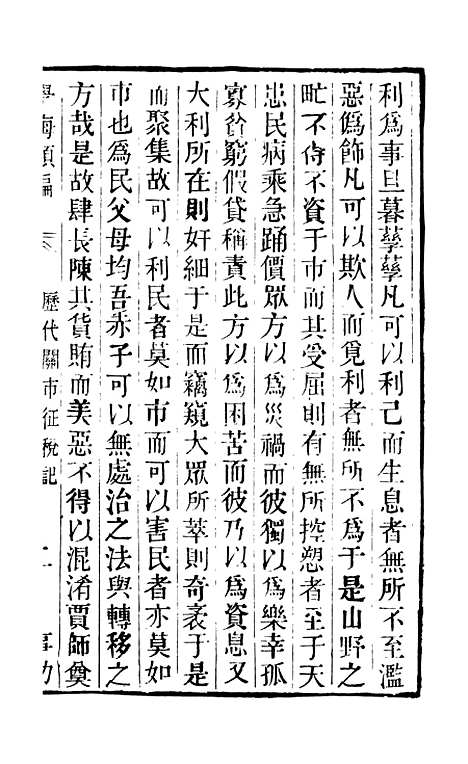 利爲事旦暮孳孳凡可以利己而生息者無所不至濫
惡僞飾凡可以欺人而覓利者無所不爲于是山野之
甿不侍不資于市而其受屈則有無所控愬者至于天
患民病乘急踊價眾方以爲災禍而彼獨以爲樂幸孤
寡貧窮假貸稱責此方以爲困苦而彼乃以爲資息又
大利所在則奸細于是而竊窺大眾所萃則奇袤于是
而聚集故可以利民者莫如市而可以害民者亦莫如
市也爲民父母均吾赤子可以無處治之法與轉移之
方哉是故肆長陳其貨賄而美惡不得以混淆賈師奠
學海類編 歷代關市征稅記